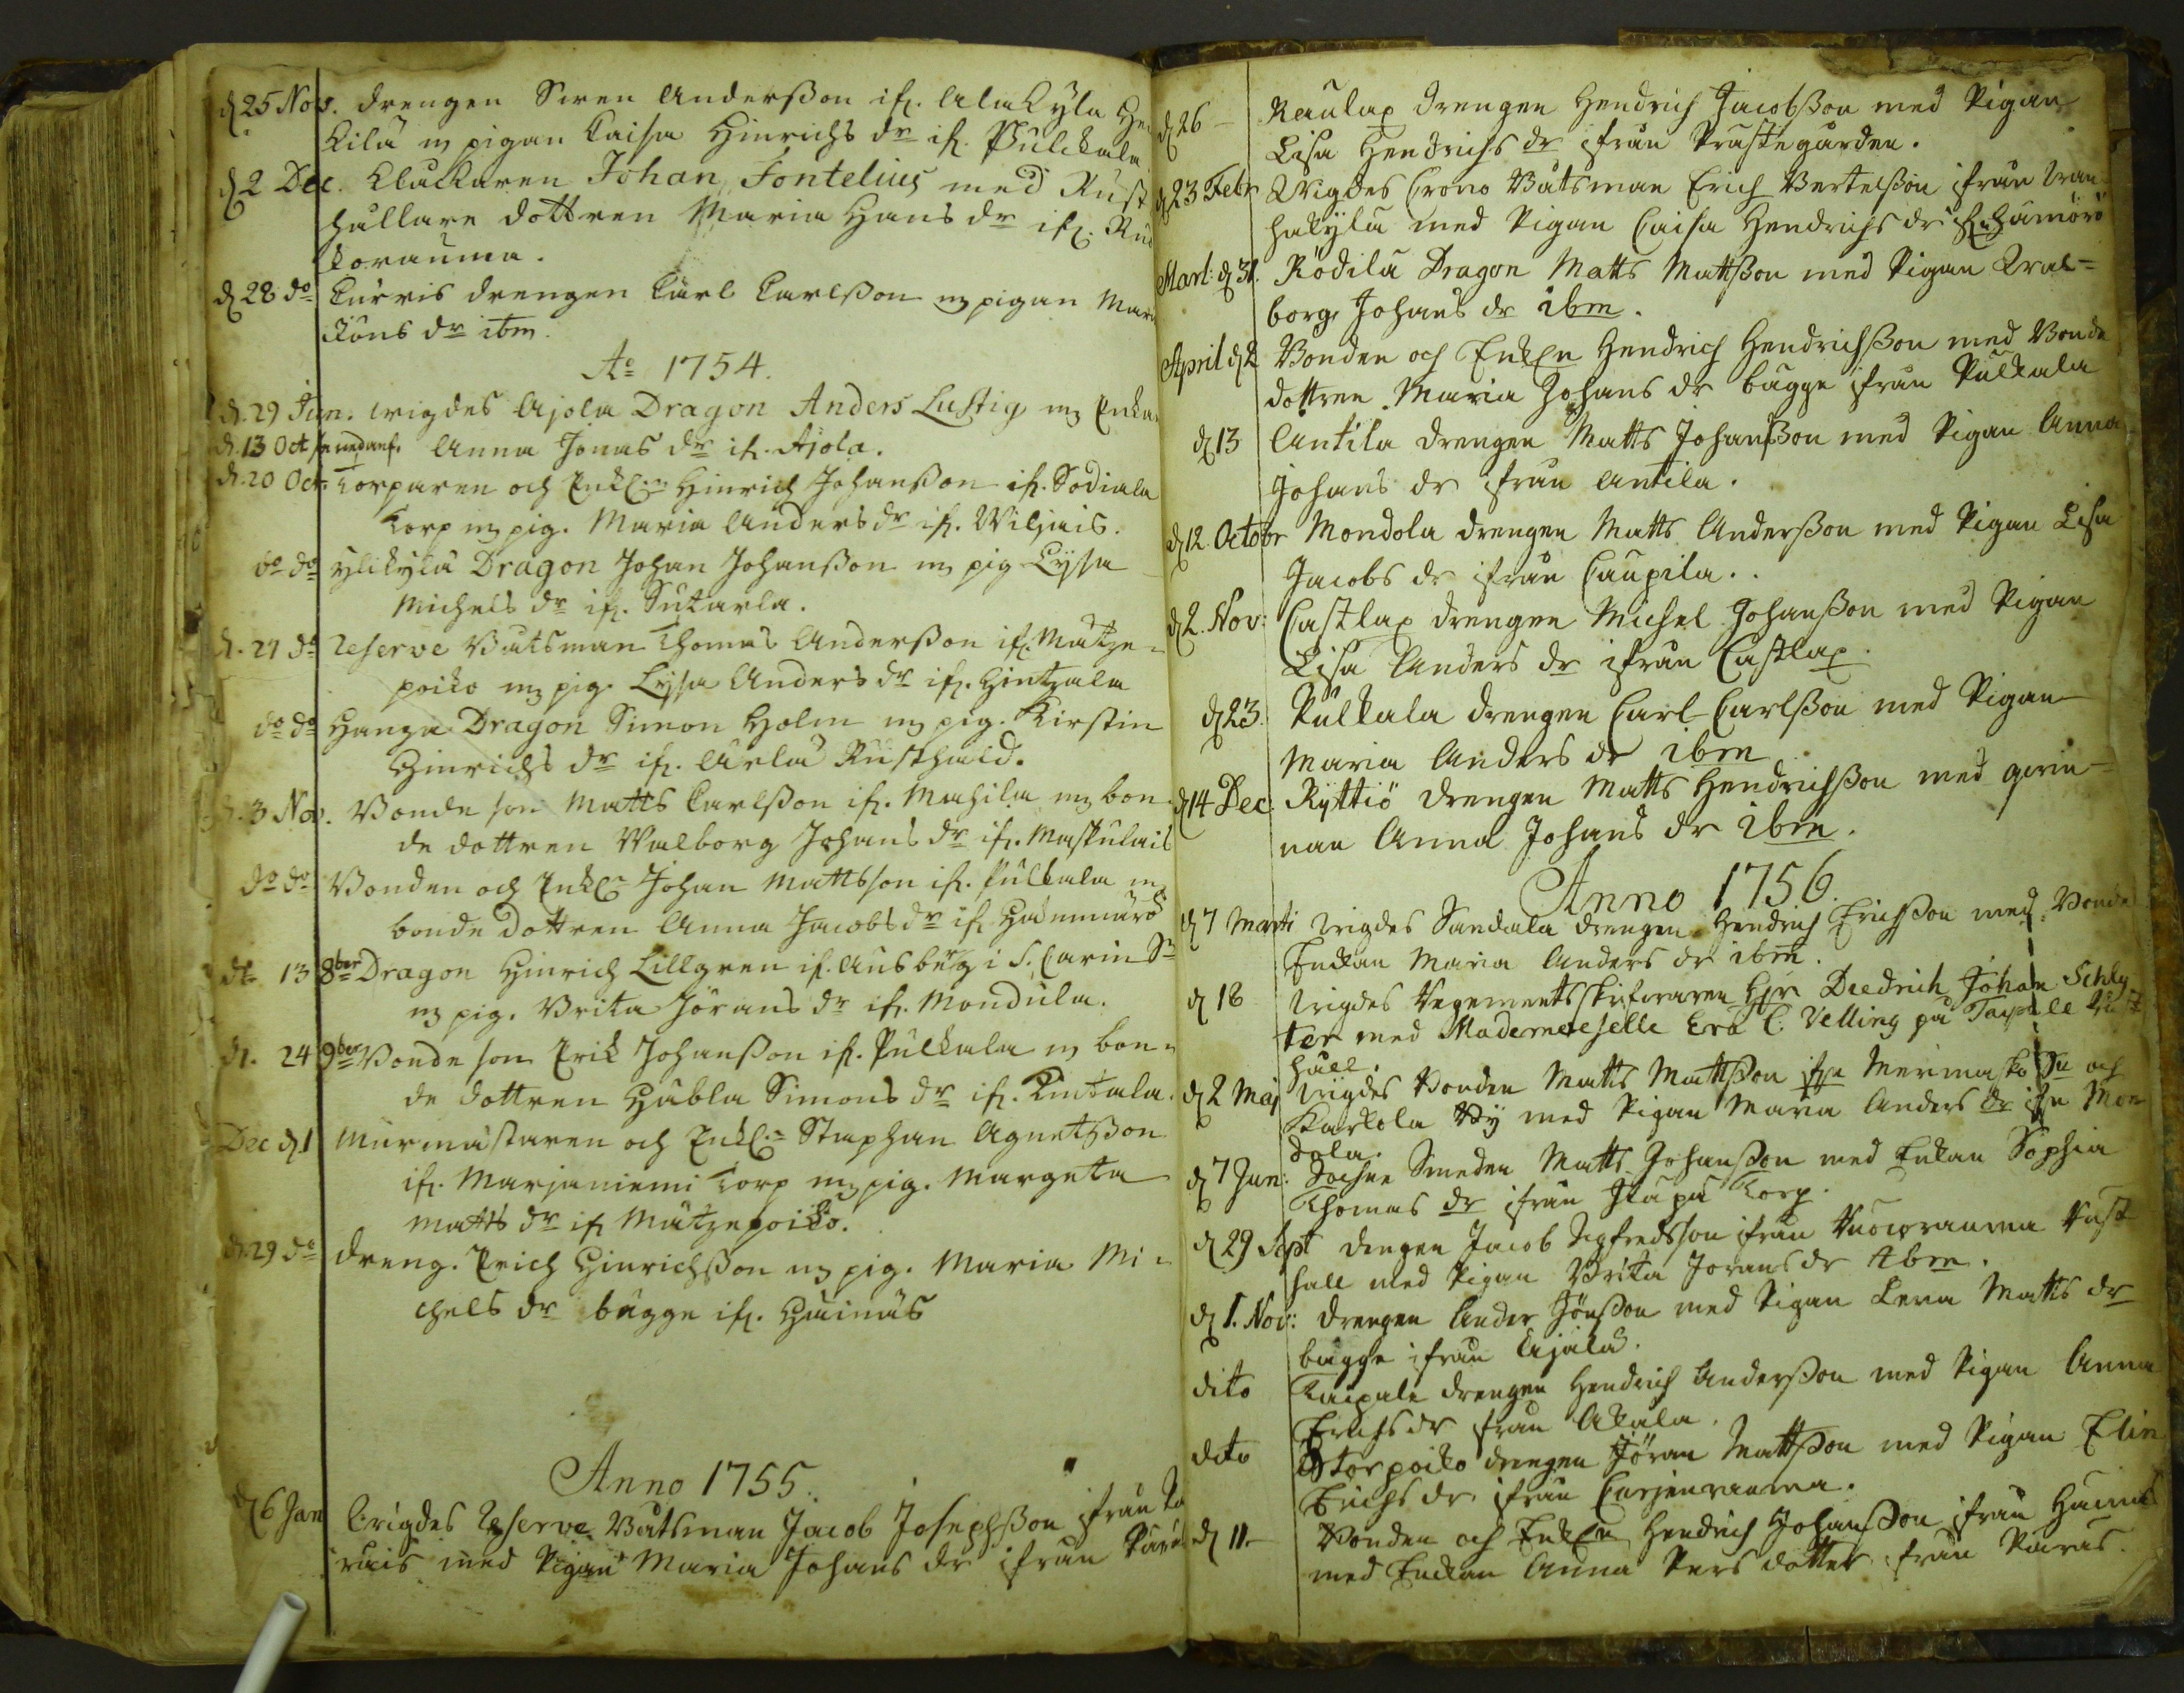 d 25 Nov. Drengen Sven Andersson ifr. Alakyla
Kilä m pigan Caisa Hinrichs dr ifr. Pulckala
d 2 Dec. Cluckaren Johan Fontelius med Rust
hållare dottren Maria Hans dr ifr.
korauma.
d 28 do Curris drengen Carl Carlsson m pigan
dr ibm.
Ao 1754.
d. 29 Jun. wigdes Ajola Dragon Anders Lustig m Enka
d. 13 Oct Anna Jonas dr ifr. Ajola.
d. 20 Oct. Torparen och Enkl: Hinrich Johansson ifr. Sodiala
Torp m pig. Maria Anders dr ifr. Wiljais.
do do ylikylä Dragon Johan Johansson m pig Lysa
Michels dr ifr. Sutarla.
d. 27 do Reserve Båtsman Thomas Andersson ifr. Matze-
poiko m pig. Lysa Anders dr ifr. Hintzala
do do Hanga Dragon Simon Holm m pig. Kirstin
Hinrichs dr ifr. Arla Rusthåld.
d. 3 Nov. Bonde son Matts Carlsson ifr. Mahila m bon-
de dottren Walborg Johans dr ifr. Maskulais
do do Bonden och Enkl: Johan Mattsson ifr. Pulkala m
bonde dottren Anna Jacobs dr ifr
d. 13 8ber Dragon Hinrich Lillgren ifr. Ausberg i S. Carin Sn
m pig. Brita Jörans dr ifr. Mondula.
d. 24 9ber Bonde son Erik Johansson ifr. Pulkala m bon-
de dottren Hebla Simons dr ifr. Kintala.
Dec d 1 Murmästaren och Enkl: Staphan Agnetsson
ifr. Marjaniemi Torp m pig. Margeta
Matts dr ifr Matzepoiko.
d. 29 do Dreng. Erich Hinrichsson m pig. Maria Mi-
chels dr bägge ifr. Haimäs
Anno 1755.
d 6 Jan Wigdes Reserve Båtsman Jacob Josephsson ifrån
rais med Pigan Maria Johans dr ifrån
d 26 — Kaulax drengen Hendrich Jacobsson med Pigan
Lisa Hendrichs dr ifrån Prästegården.
d 23 Febr Wigdes Crono Båtsman Erich Bertelsson ifrån
hakylä med Pigan Caisa Hendrichs dr
Mart: d 31. Rödilä Dragon Matts Mattsson med Pigan Wal=
borg Johans dr ibm.
April d 2 Bonden och Enkln Hendrich Hendrichsson med Bonde
dottren Maria Johans dr bägge ifrån Pulkala
d 13 Antila drengen Matts Johansson med Pigan Anna
Johans dr ifrån Antila.
d 12 Octobr Mondola drengen Matts Andersson med Pigan Lisa
Jacobs dr ifrån Caupila.
d 2. Nov: Castlax drengen Michel Johansson med Pigan
Lisa Anders dr ifrån Castlax.
d 23. Pulkala drengen Carl Carlsson med Pigan
Maria Anders dr ibm
d 14 Dec: Ryttiö drengen Matts Hendrichsson med qvin=
nan Anna Johans dr ibm.
Anno 1756.
d 7 Marti Wigdes Sandala drengen Hendrich Erichsson med Bonde
Enckan Maria Anders dr ibm.
d 18 Wigdes Regementsskrifvaren Hr Diedrich Johan Schly
ter med Mademoiselle Eva C: Velling på Taipale Rust
håll.
d 2 Maj Wigdes Bonden Matts Mattsson ifrn Merimasko Sn och
Karkola By med Pigan Maria Anders dr ifrn Mon
dola.
d 7 Jun: Sockne Smeden Matts Johansson med Enkan Sophia
Thomas dr ifrån Torp.
d 29 Sept drengen Jacob Sigfredsson ifrån Vuolorauma Rust
håll med Pigan Brita Jorans dr ibm.
d 1. Nov: Drengen Ander Jönsson med Pigan Lena Matts dr
bägge ifrån Ajala.
dito Taipale drengen Hendrich Andersson med Pigan Anna
Erichs dr ifrån Akala.
dito Storpoiko drengen Jöran Mattsson med Pigan Elin
Erichs dr ifrån Carjenrauma.
d 11. Bonden och Enkln Hendrich Johansson ifrån Haimäs
med Enckan Anna Pers dotter ifrån Paras.